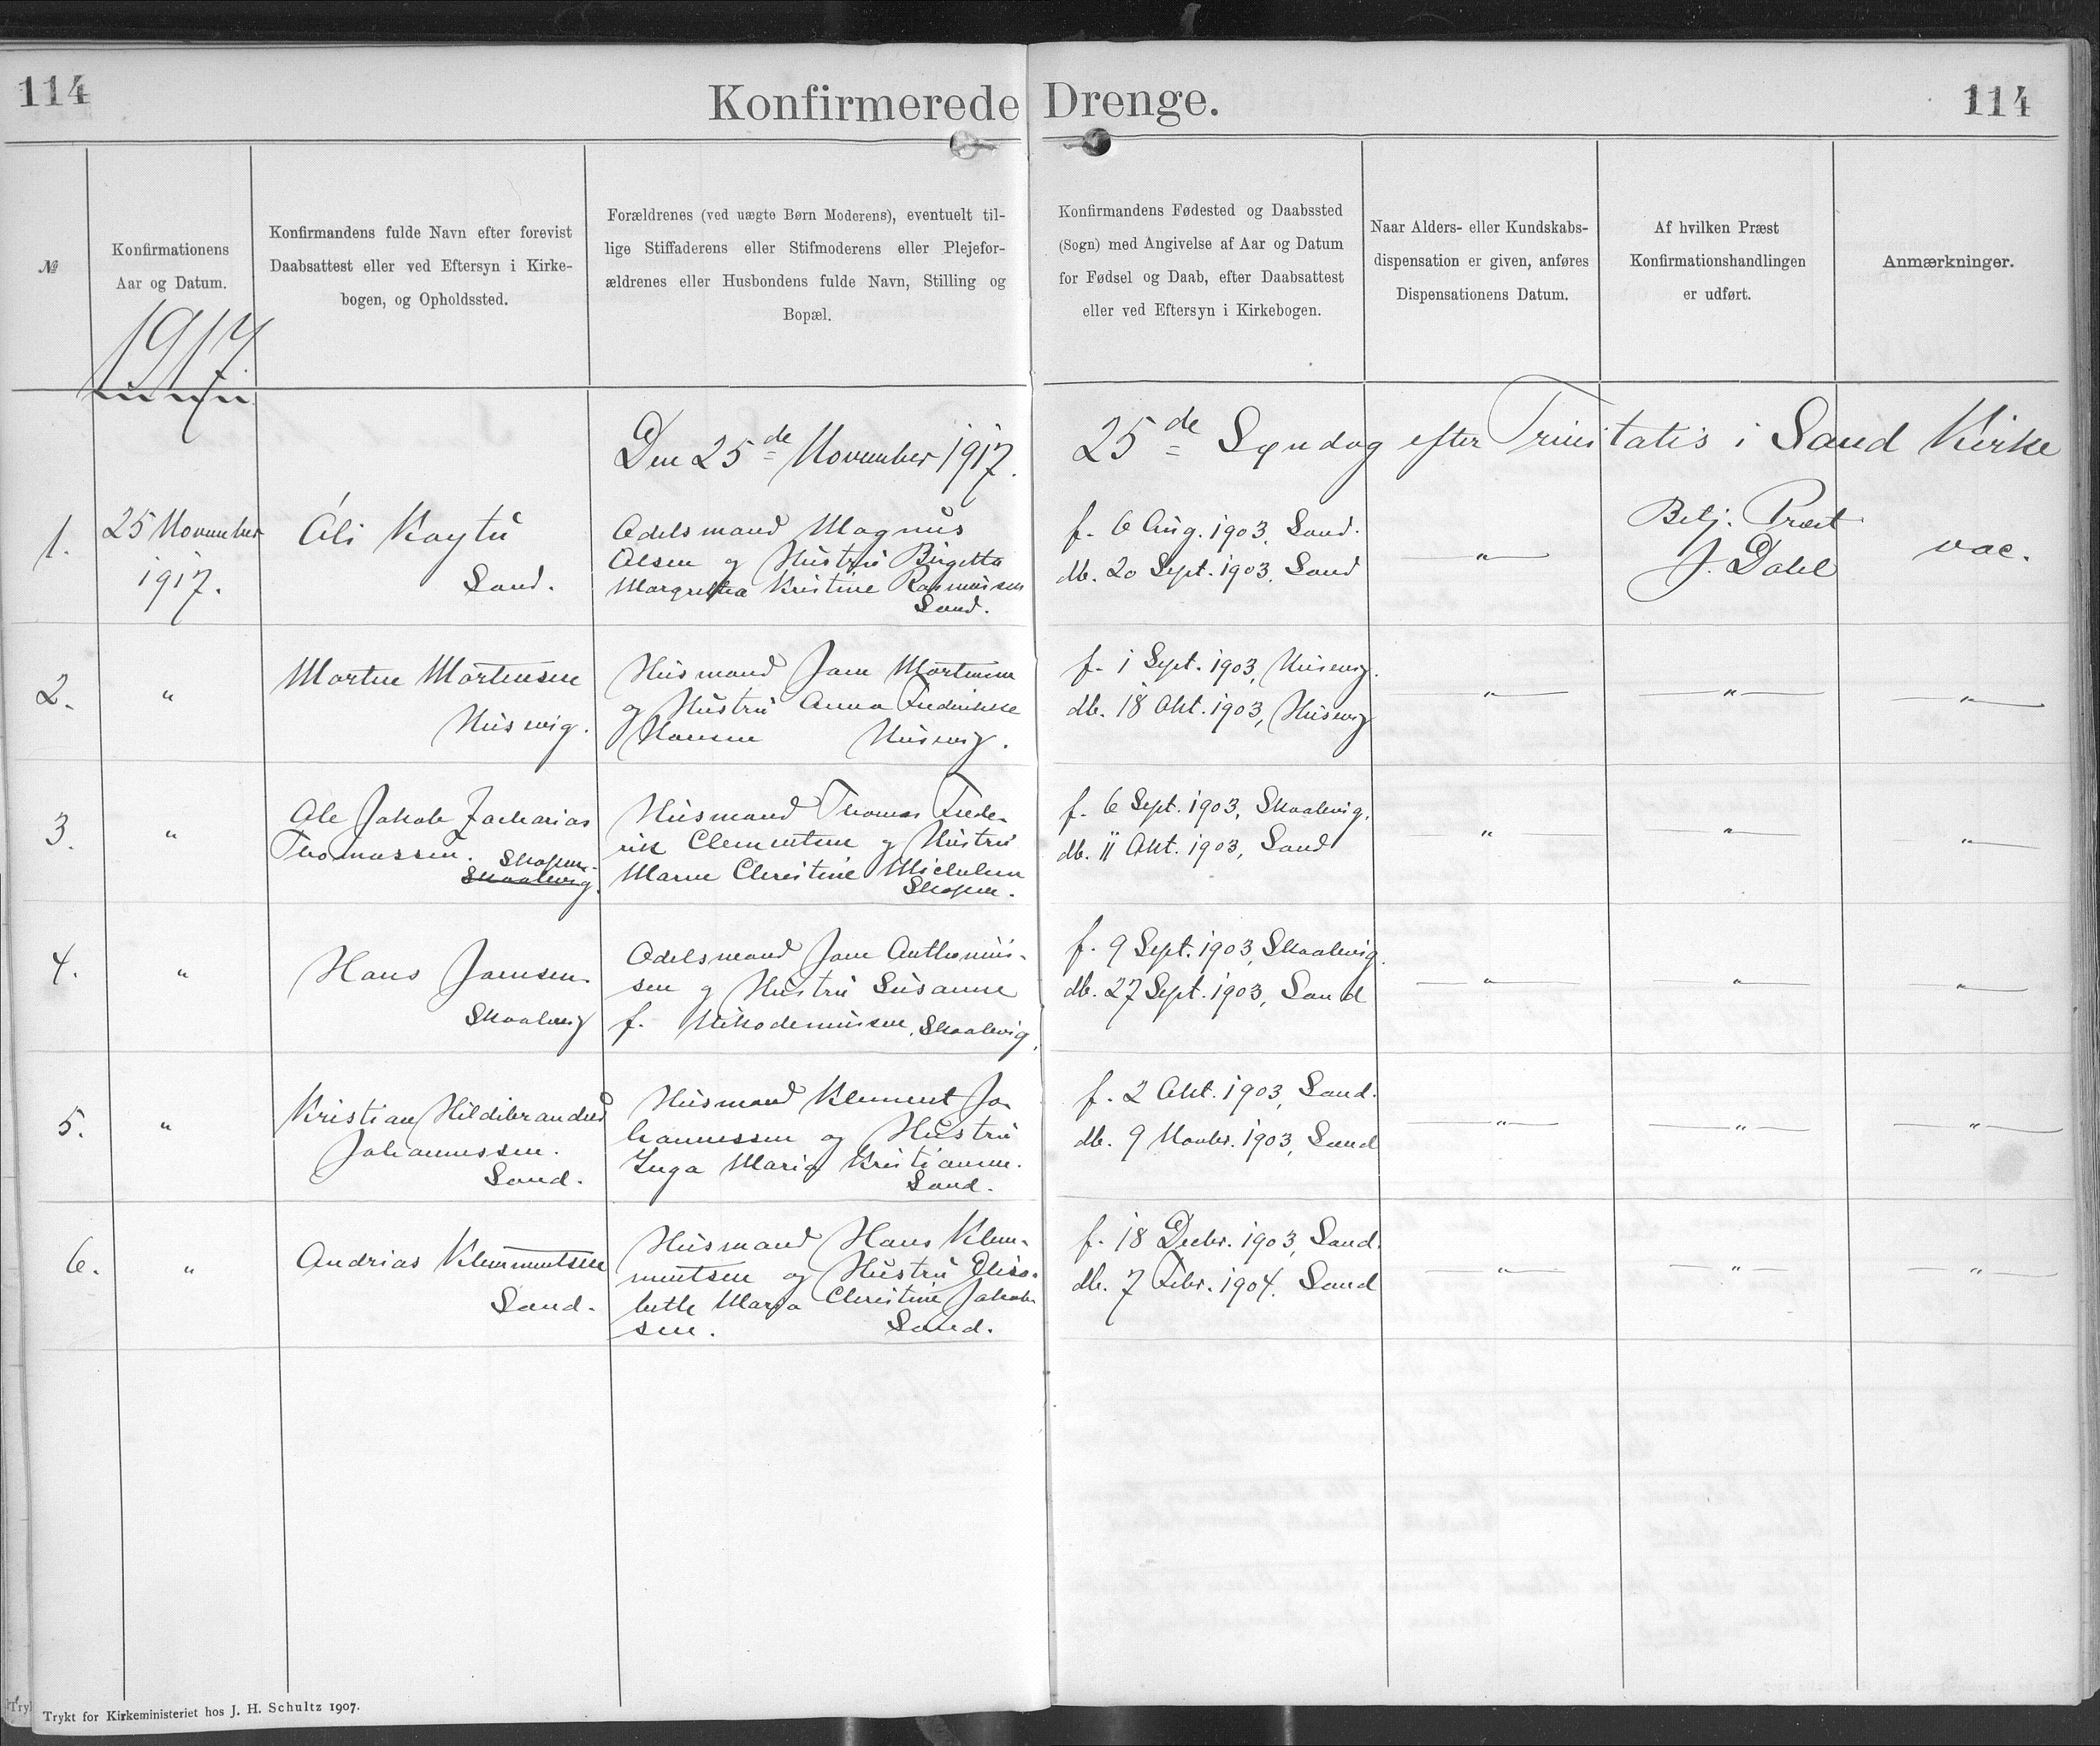 114
Konfirmerede Drenge.
114
№
Konfirmationens
Aar og Datum.
Konfirmandens fulde Navn efter forevist
Daabsattest eller ved Eftersyn i Kirke-
bogen, og Opholdssted.
Forældrenes (ved uægte Børn Moderens), eventuelt til-
lige Stiffaderens eller Stifmoderens eller Plejefor-
ældrenes eller Husbondens fulde Navn, Stilling og
Bopæl.
Konfirmandens Fødested og Daabssted
(Sogn) med Angivelse af Aar og Datum
for Fødsel og Daab, efter Daabsattest
eller ved Eftersyn i Kirkebogen.
Naar Alders- eller Kundskabs-
dispensation er given, anføres
Dispensationens Datum.
Af hvilken Præst
Konfirmationshandlingen
er udført.
Anmærkninger.
1917.
Den 25de November 1917. 25de Søndag efter Trinitatis i Sand Kirke
1.
25 November
1917.
Óli Kaytú
Sand.
Odelsmand Magnus
Olsen og Hustru Birgetta
Margretha Kristine Rasmussen
Sand.
f. 6 Aug. 1903, Sand.
db. 20 Sept. 1903, Sand
"
Betj. Præst
J. Dahl
vac.
2.
"
Morten Mortensen
Húsavig.
Husmand Joen Mortensen
og Hustru Anna Frederikke
Hansen Húsavig.
f. 1 Sept. 1903, Húsavig.
db. 18 Okt. 1903, Húsavig
"
"
"
3.
"
Ole Jakob Zacharias
Thomassen. Skopun.
Skaalevig.
Husmand Thomas Frede-
rik Clementsen og Hustru
Maren Christine Michelsen
Skopun.
f. 6 Sept. 1903, Skaalevig.
db. 11 Okt. 1903, Sand
"
"
"
4.
"
Hans Joensen.
Skaalevig
Odelsmand Joen Anthonius-
sen og Hustru Susanne
f. Nikodemussen, Skaalevig.
f. 9 Sept. 1903, Skaalevig.
db. 27 Sept. 1903, Sand
"
"
"
5.
"
Kristian Hildibrandur
Johannessen.
Sand.
Husmand Klement Jo-
hannessen og Hustru
Inga Maria Kristiansen.
Sand.
f. 2 Okt. 1903, Sand.
db. 9 Novbr. 1903, Sand
"
"
"
6.
"
Andrias Klemmentsen
Sand.
Husmand Hans Klem-
mentsen og Hustru Elisa-
beth Maria Christine Jakob-
sen. Sand.
f. 18 Decbr. 1903, Sand.
db. 7 Febr. 1904. Sand
"
"
"
Trykt for Kirkeministeriet hos J. H. Schultz 1907.